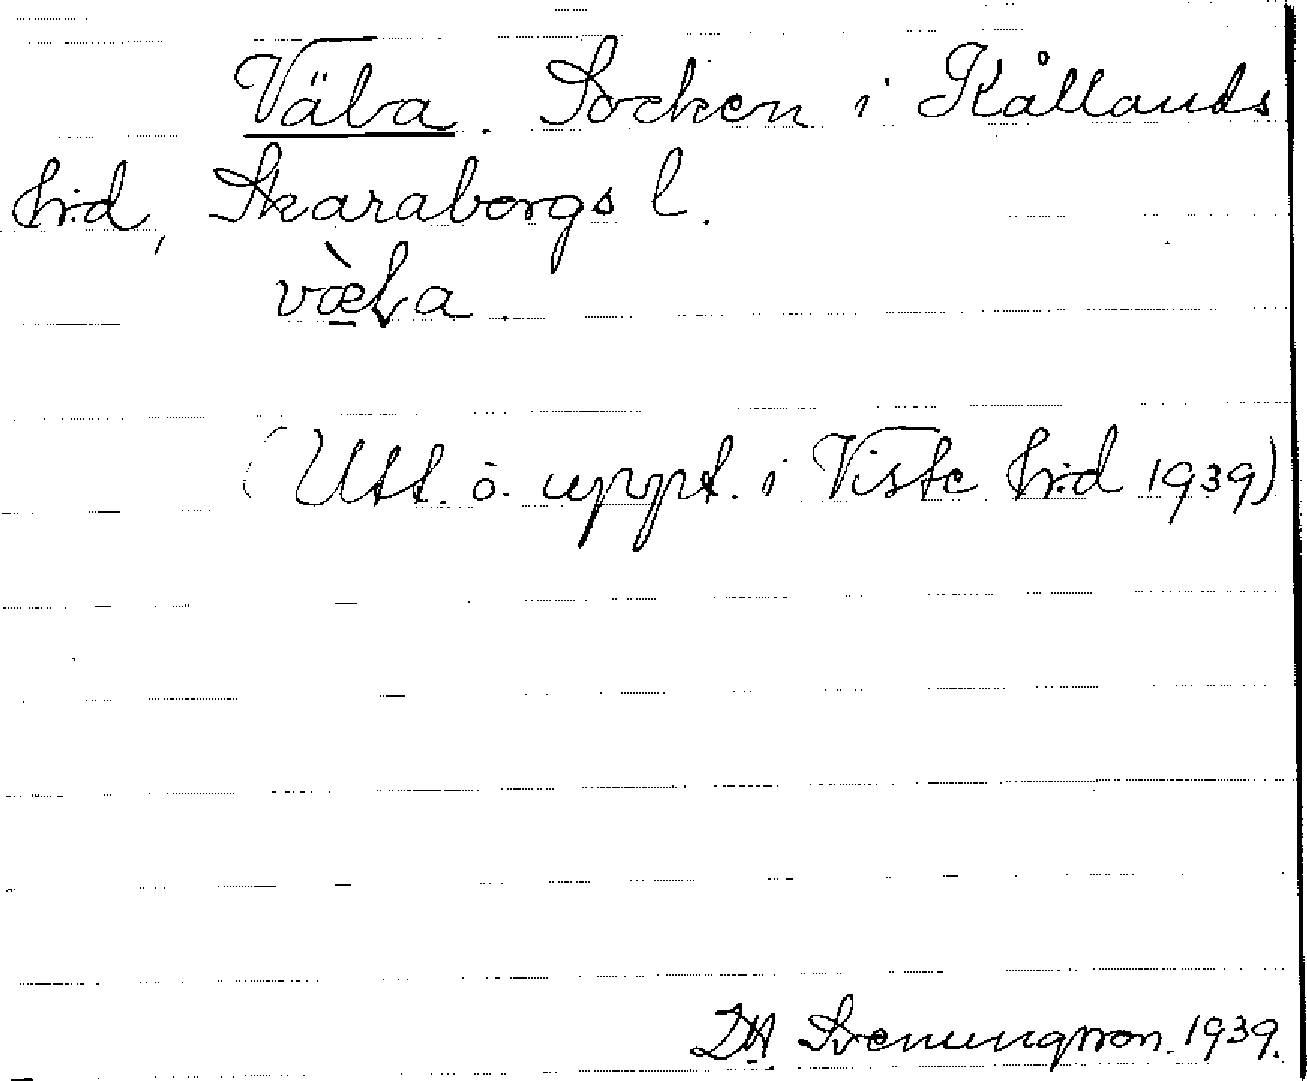 Väla. Socken i Kållands
hrd, Skaraborgs l.
væ̀la.
(Utt. o. uppt. i Viste hrd 1939)
DA Svenungsson. 1939.